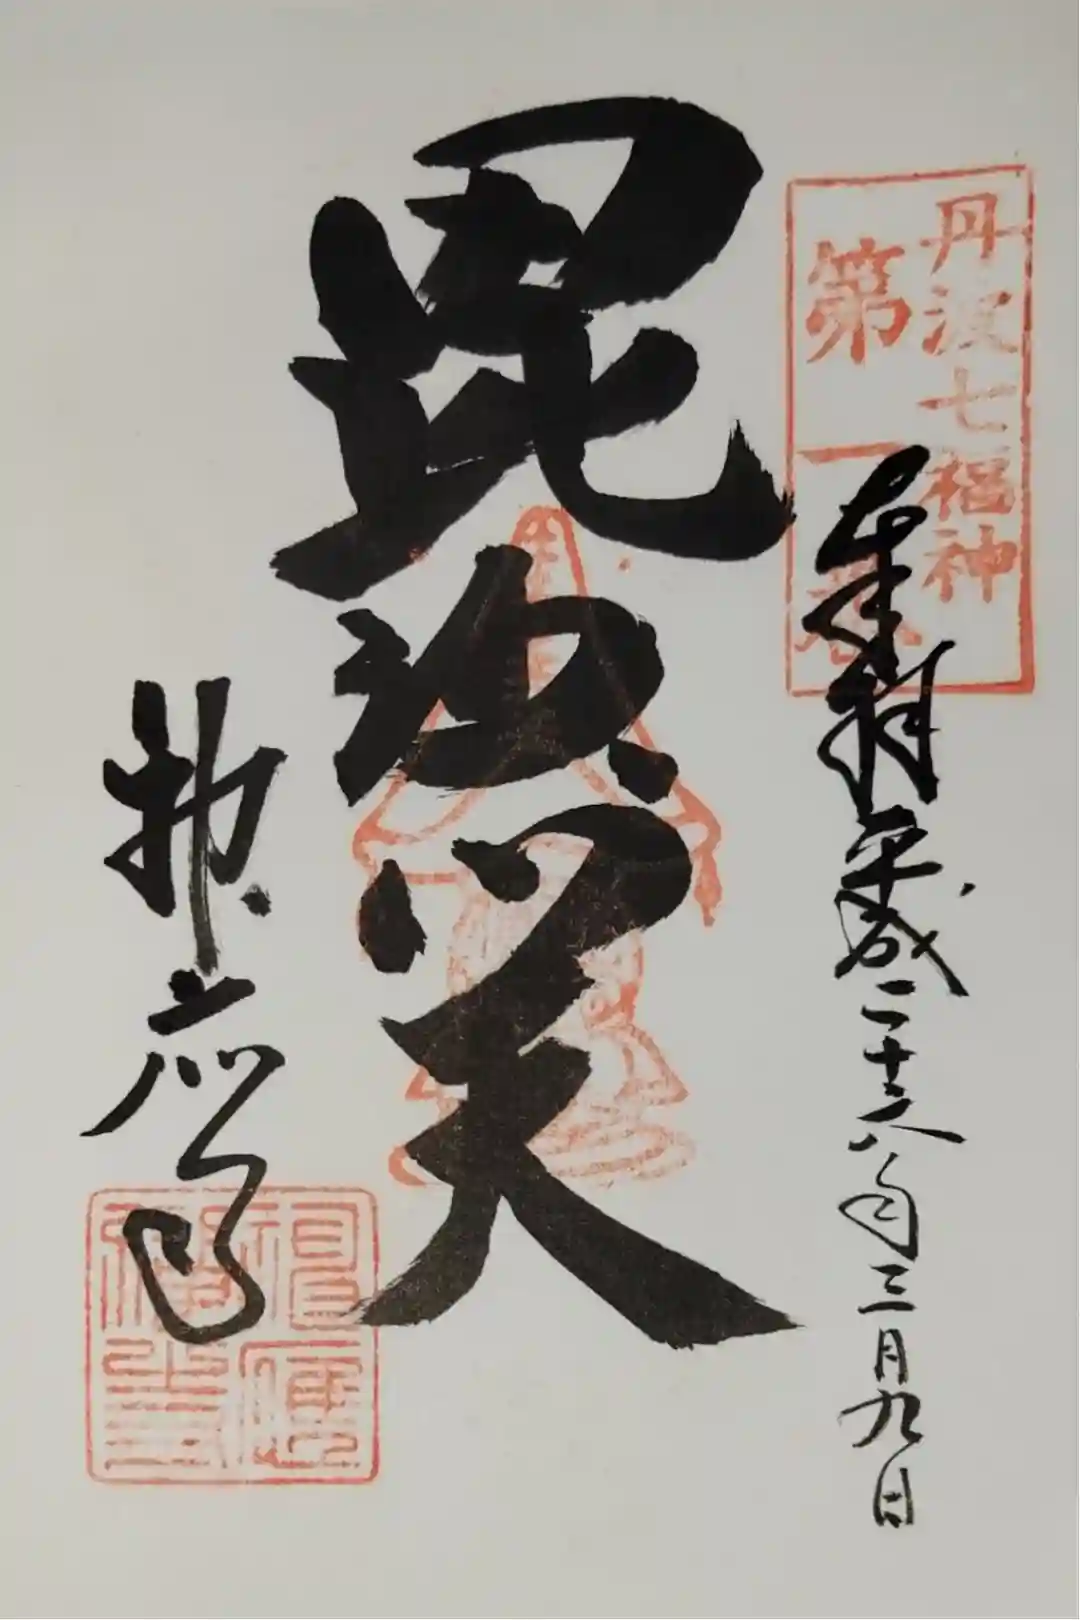 丹波七福神
第一番
奉拝
平成二十六年三月九日
毘沙門天
神應寺